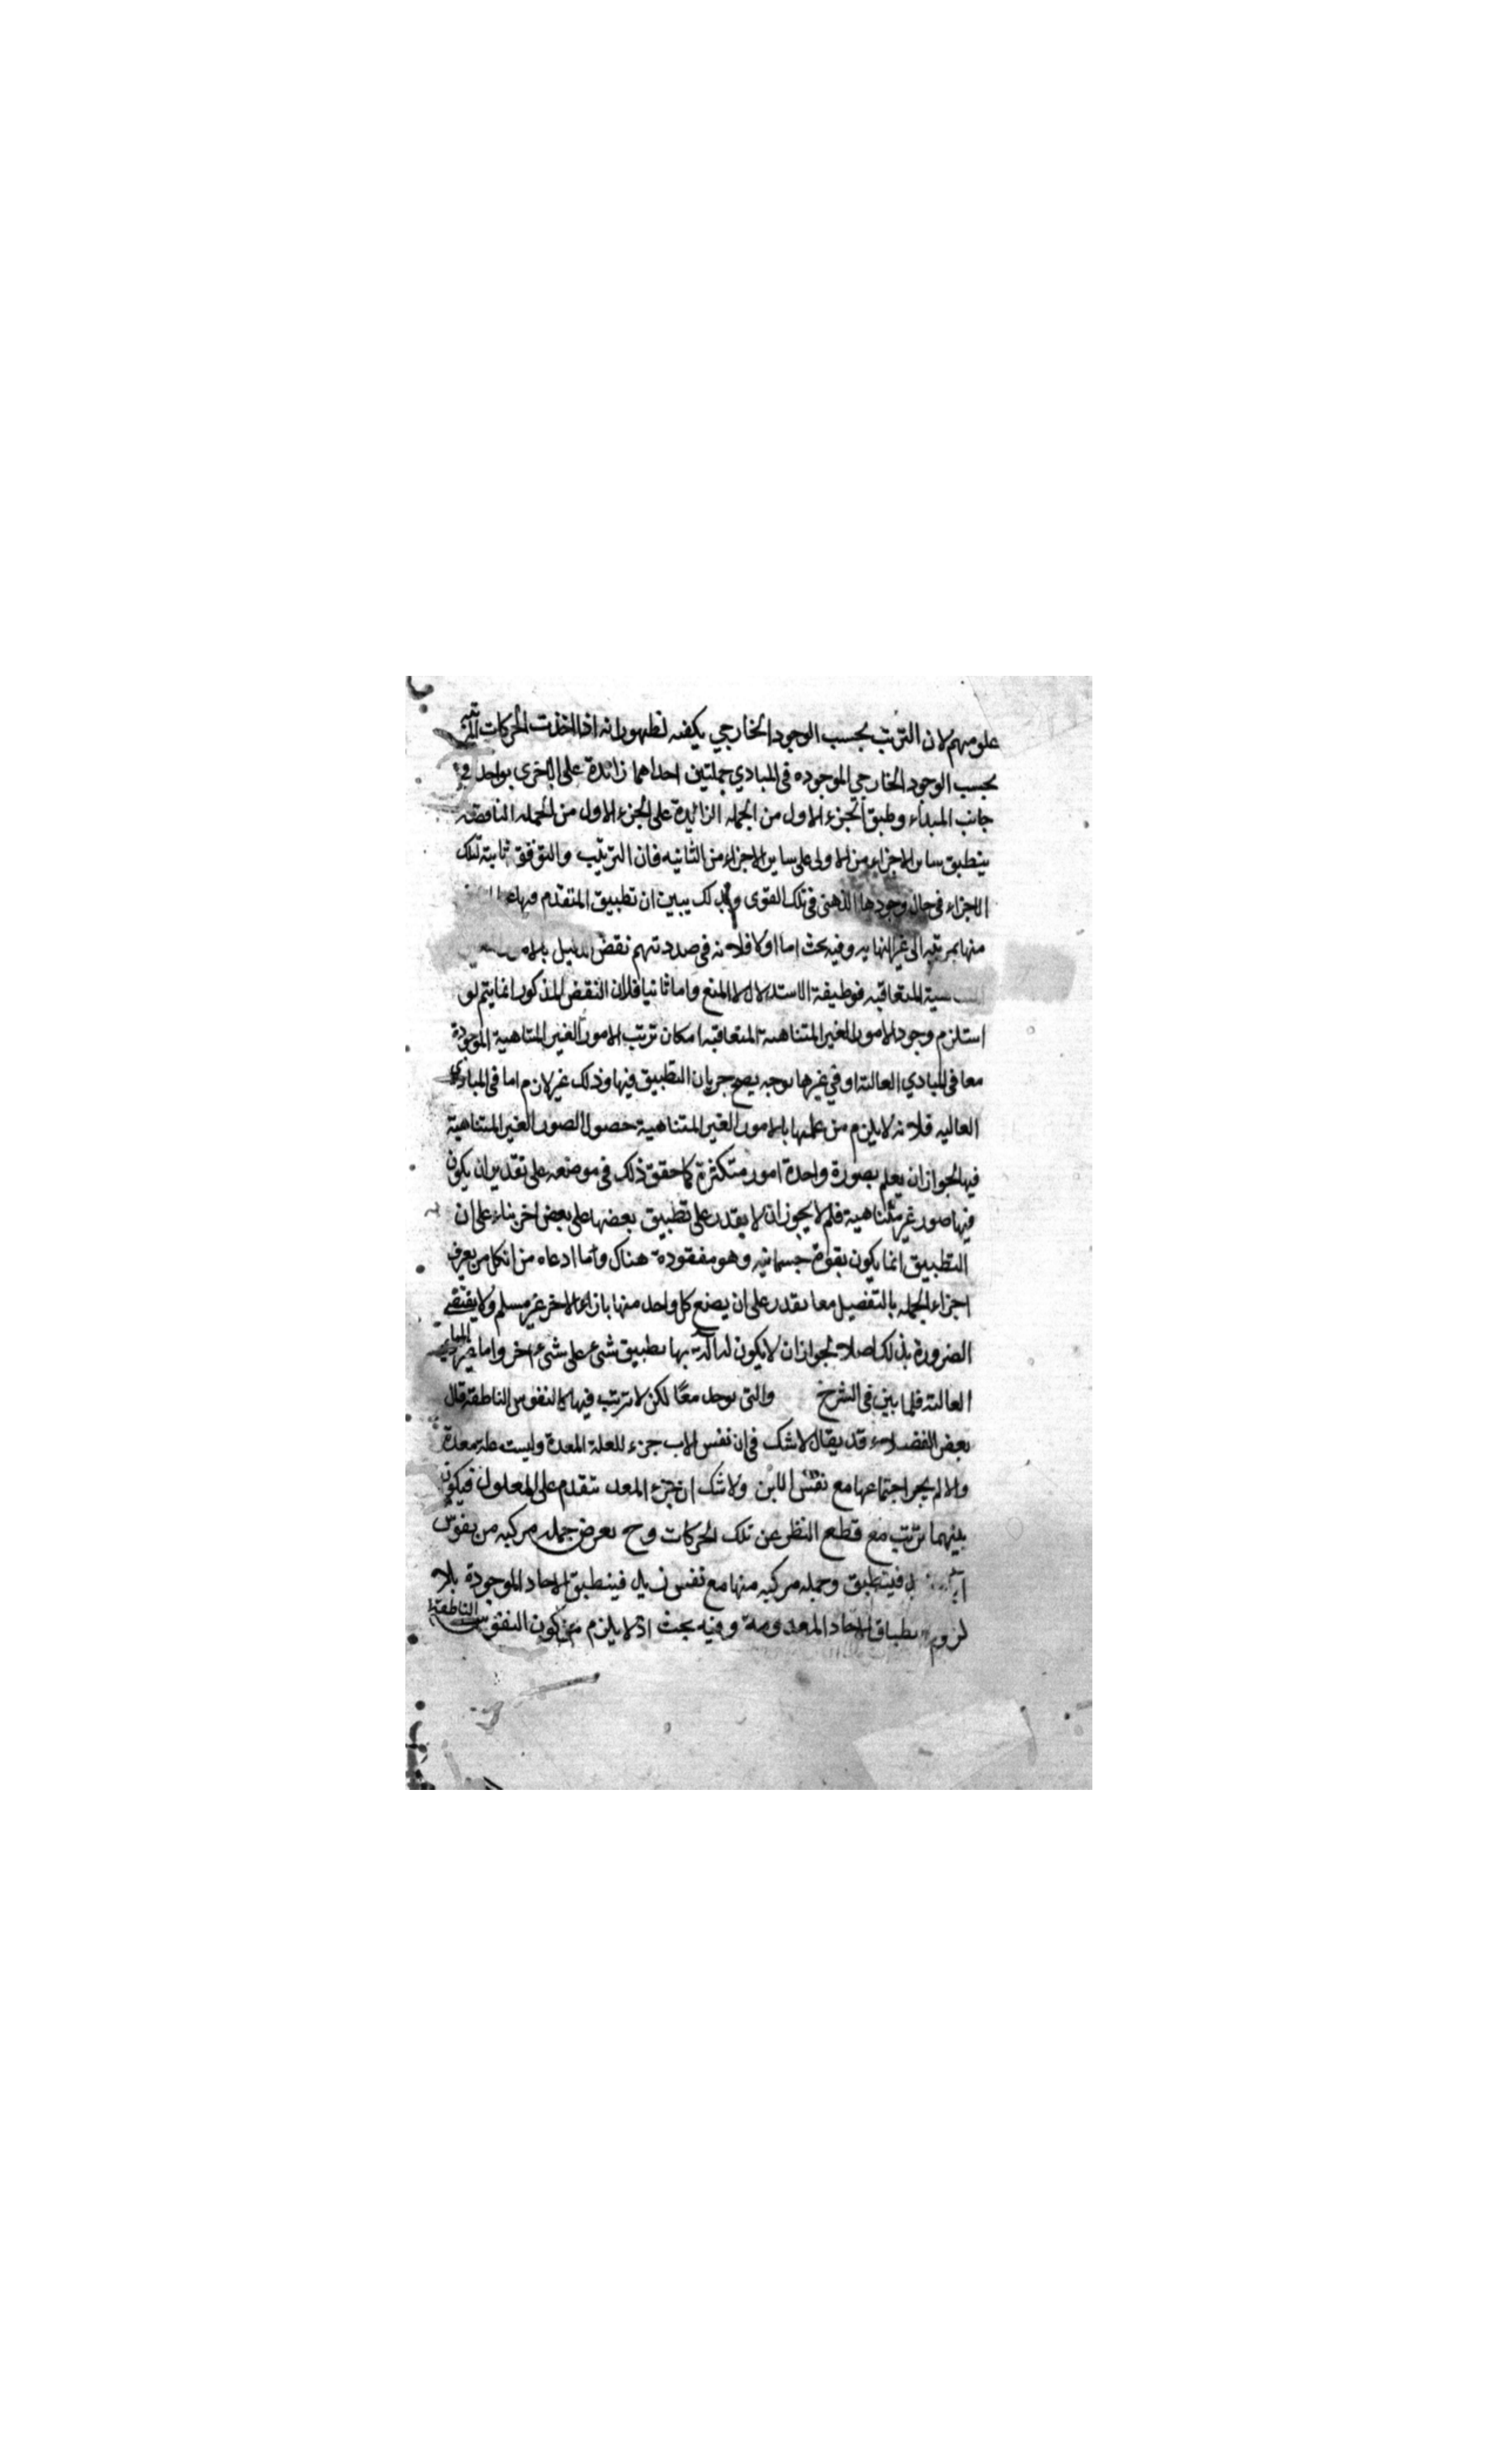 علومهم لان الترتب بحسب الوجود الخارجي يكفيه لظهور انه اذا اخذت الحركات المترتبة
بحسب الوجود الخارجي الموجوده في المبادي جملتين احداهما زائدة على الاخرى بواحد في
جانب المبداء وطبق الجزء الاول من الجمله الزائدة على الجزء الاول من الجمله الناقصه
ينطبق ساير الاجزاء من الاولى على ساير الاجزاء من الثانيه فان الترتيب والتوقف ثابتة لتلك
الاجزاء في حال وجودها الذهني في تلك القوى وبذلك يبين ان تطبيق المتقدم منها
منها بمرتبه الى غير النهايه وفيه بحث اما اولا فلانه في صدد تهم نقض
المتعاقبه فوظيفة الاستدلال لا المنع واما ثانيا فلان النقض المذكور انما يتم لو
استلزم وجود الامور الغير المتناهية المتعاقبه امكان ترتب الامور الغير المتناهية الموجودة
معا في المبادي العالية او في غيرها بوجه يصح جريان التطبيق فيها وذلك غير لازم اما في المبادي
العاليه فلانه لا يلزم من علمها بالامور الغير المتناهية حصول الصور الغير المتناهية
فيها لجواز ان يعلم بصورة واحدة امور متكثرة كما حقق ذلك في موضعه على تقدير ان يكون
فيها صور غير متناهية فلم لا يجوز ان لا يقدر على تطبيق بعضها على بعض اخر بناء على ان
التطبيق انما يكون بقوة جسمانيه وهو مفقودة هناك واما ادعاه من ان كل من يعرف
اجزاء الجمله بالتفصيل معا يقدر على ان يضع كل واحد منها بازاء الاخر غير مسلم ولا يقتضي
الضرورة بذلك اصلا لجواز ان لا يكون له آلة بها تطبيق شئ على شئ اخر واما غير المبادي
العالية فلما بين في الشرح والتي توجد معًا لكن لا ترتب فيها كالنفوس الناطقة قال
بعض الفضلاء قد يقال لا شك في ان نفس الاب جزء للعلة المعدة وليست علة معدة
والا لم يجز اجتماعها مع نفس الابن ولا شك ان جزء المعد متقدم على المعلول فيكون
بينهما ترتب مع قطع النظر عن تلك الحركات وح نعرض جمله مركبه من نفوس
فينطبق وجمله مركبه منها مع نفس فينطبق الاحاد الموجودة بلا
لزوم انطباق الاحاد المعدومة وفيه بحث اذ لا يلزم من كون النفوس الناطقة